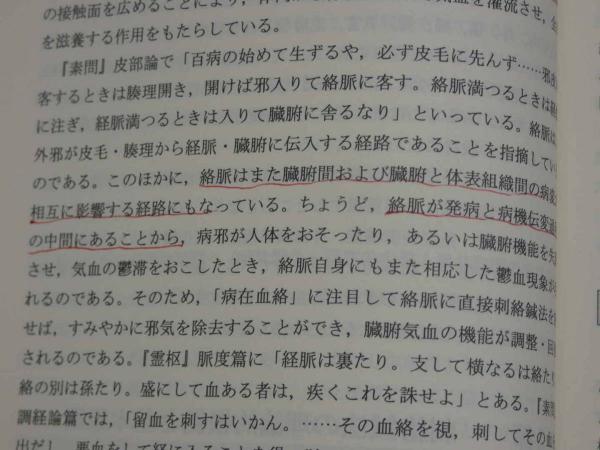 の接触面を広めることにより，
を滋養する作用をもたらしている。
『素問』皮部論で「百病の始めて生ずるや，必ず皮毛に先んず……邪
客するときは腠理開き，開けば邪入りて絡脈に客す。絡脈満つるときは
に注ぎ，経脈満つるときは入りて臓腑に舎るなり」といっている。絡脈は
外邪が皮毛・腠理から経脈・臓腑に伝入する経路であることを指摘してい
のである。このほかに，絡脈はまた臓腑間および臓腑と体表組織間の病変
相互に影響する経路にもなっている。ちょうど，絡脈が発病と病機伝変過
の中間にあることから，病邪が人体をおそったり，あるいは臓腑機能を失
させ，気血の鬱滞をおこしたとき，絡脈自身にもまた相応した鬱血現象が
れるのである。そのため，「病在血絡」に注目して絡脈に直接刺絡鍼法を
せば，すみやかに邪気を除去することができ，臓腑気血の機能が調整・回
されるのである。『霊枢』脈度篇に「経脈は裏たり。支して横なるは絡た
絡の別は孫たり。盛にして血ある者は，疾くこれを誅せよ」とある。『素
調経論篇では，「留血を刺すはいかん。……その血絡を視，刺してその血
出だし，悪血をして経に入ることを得